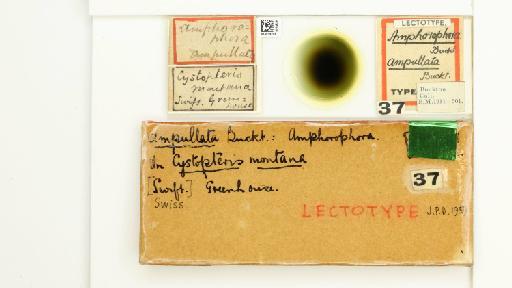 Amphoro-
phora
Ampullat
Cystopteris
montana
Swift. Green-
house
LECTOTYPE.
Amphorophora
Buckt.
ampullata
Buckt.
TYPE
Buckton
Coll.
37
Ampullata Buckt.: Amphorophora.
On Cystopteris montana
[Swift.] Greenhouse.
Swiss
37
LECTOTYPE